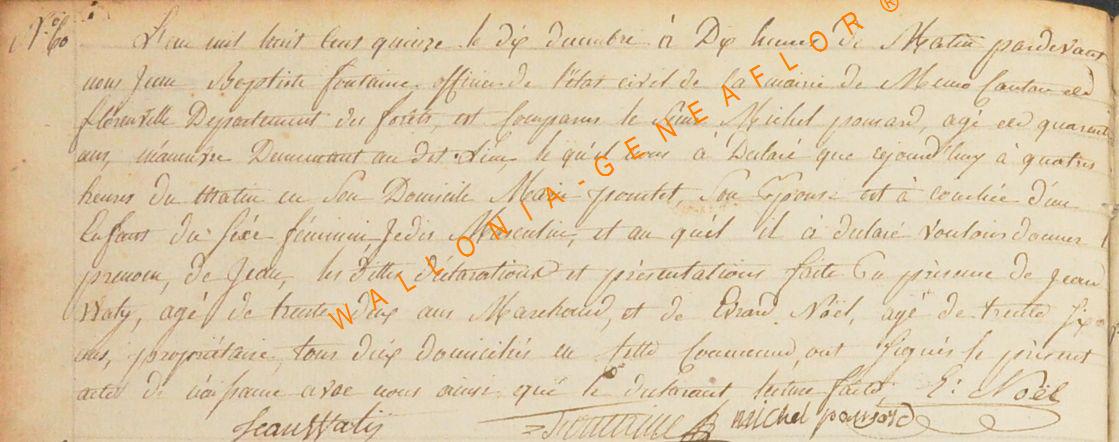 N.º 60
L'an mil huit cent quinze le dix decembre à Dix heures du Matin pardevant
nous Jean Baptiste fontaine officier de l'état civil de la mairie de Canton de
florenville Departement des forêts, est Comparus le Sieur Michel ponsard, agé de quarante
ans, manuvre Demeurant au dit Lieu, le quel nous à Declaré que cejourd'huy à quatres
heures du Matin en Son Domicile Marie poncelet, Son Epouse est à couchée d'un
Enfant du Sexe féminin, Jedis Masculin, et au quel il à declaré vouloir donner
prenom, de Jean, les dittes déclarations et présentations faite En présence de Jean
Waty, agé de trente deux ans Marchand, et de Erard Noël, agé de trente Six
ans, propriétaire, tous deux domiciliés en cette Commune, ont Signés le présent
acte de naissance avec nous ainsi que le declarant lecture faite E: Noël
Jean Waty Fontaine michel ponsard
WALLONIA-GENEAFLOR®